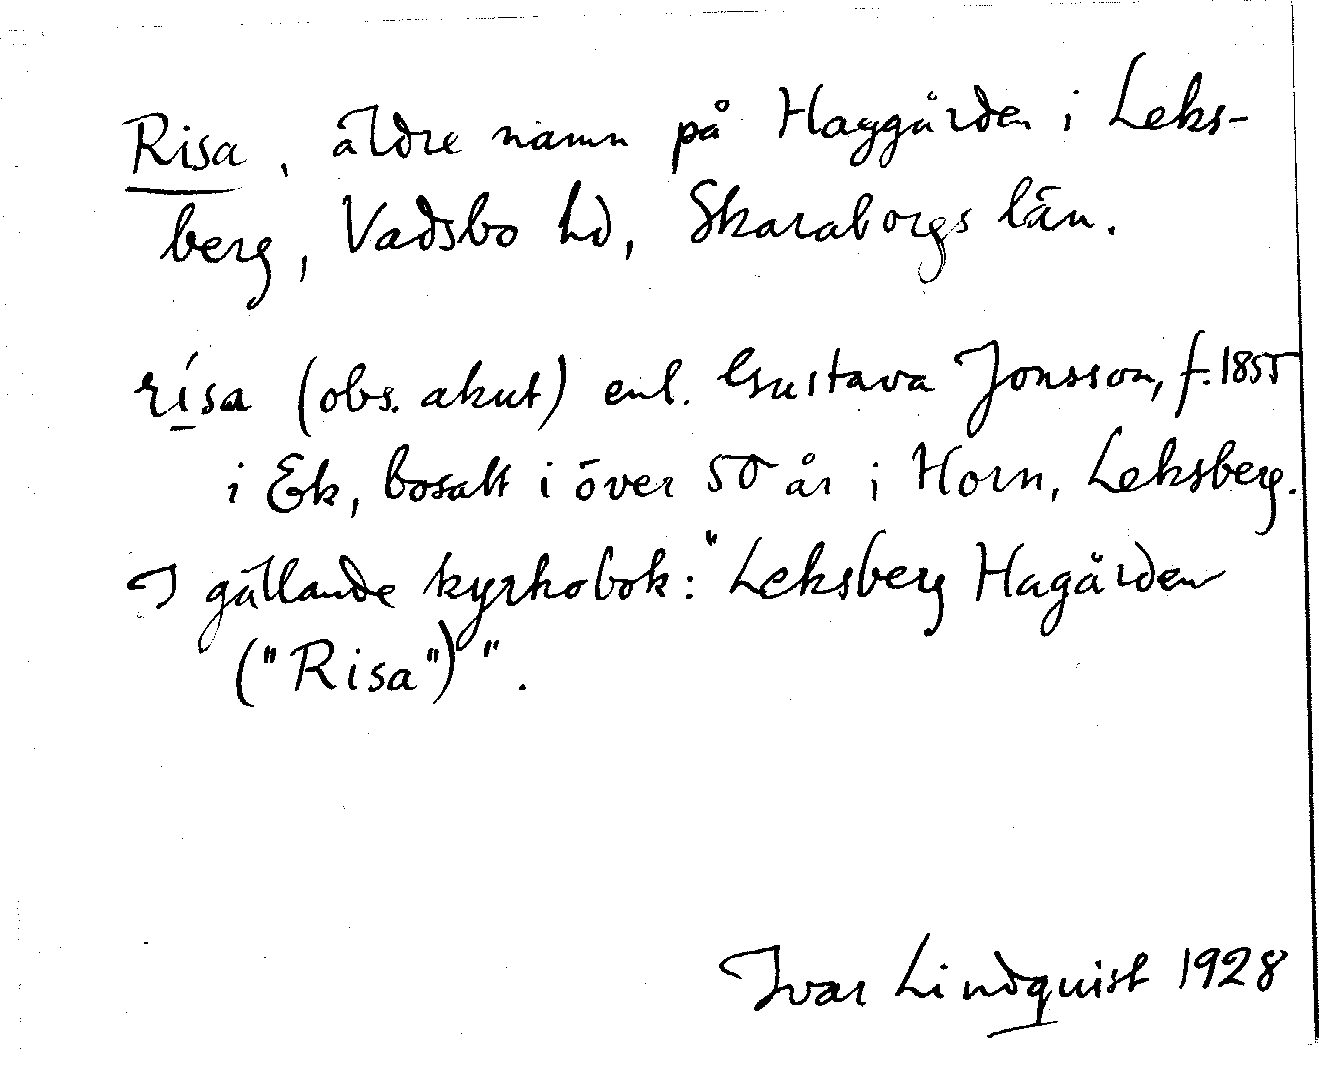 Risa, äldre namn på Haggården i Leks-
berg, Vadsbo hd, Skaraborgs län.
rísa (obs. akut) enl. Gustava Jonsson, f. 1855
i Ek, bosatt i över 50 år i Horn, Leksberg.
I gällande kyrkobok: "Leksberg Hagården
("Risa")".
Ivar Lindquist 1928